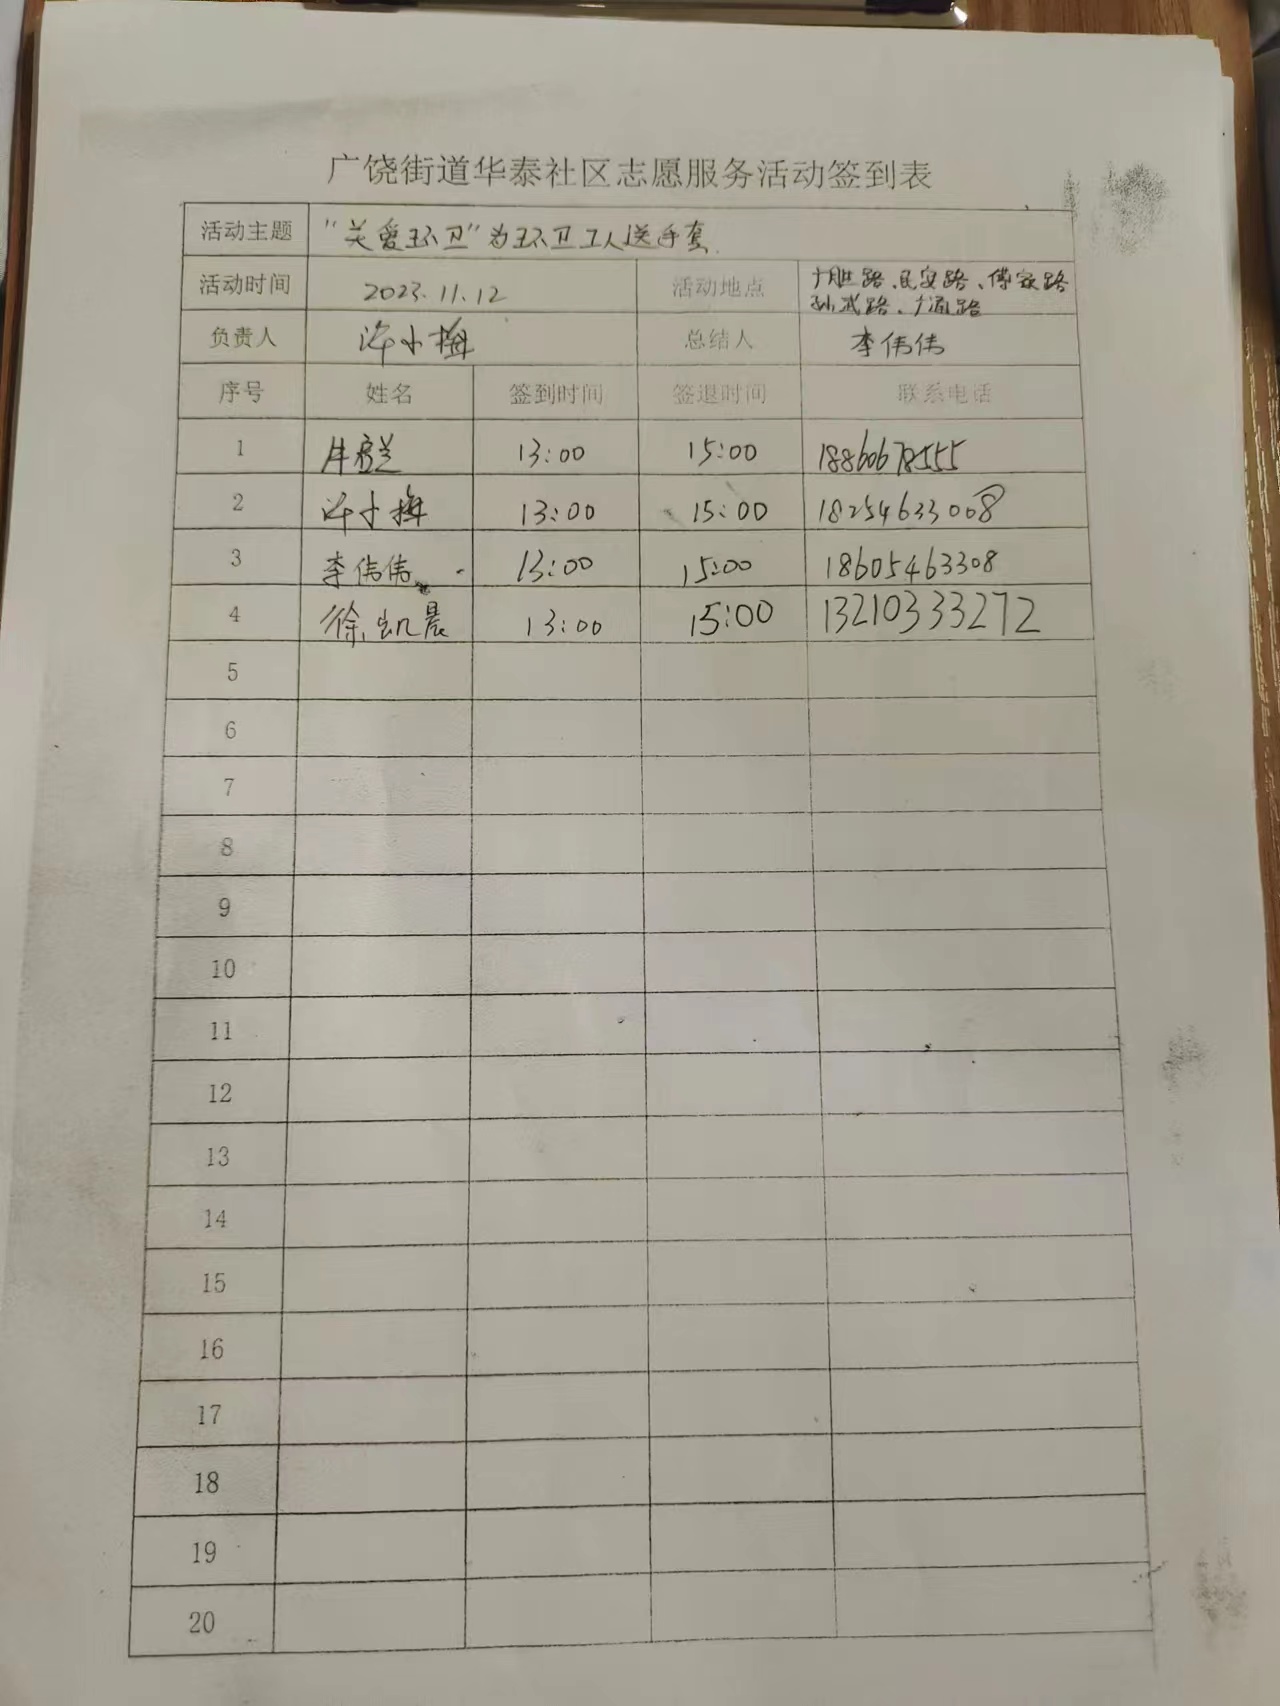 广饶街道华泰社区志愿服务活动签到表
活动主题 "关爱环卫"为环卫工人送手套.
活动时间 2023.11.12 活动地点 广胜路、民安路、傅家路
孙武路、广通路
负责人 许小梅 总结人 李伟伟
序号 姓名 签到时间 签退时间 联系电话
1 13:00 15:00 18860678555
2 许小梅 13:00 15:00 18254633008
3 李伟伟 13:00 15:00 18605463308
4 徐凯晨 13:00 15:00 13210333272
5
6
7
8
9
10
11
12
13
14
15
16
17
18
19
20